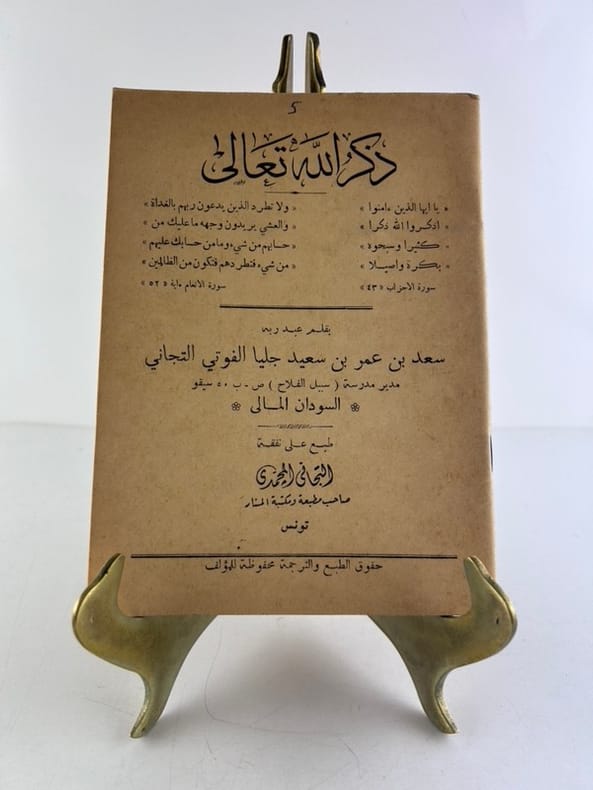 5
ذكر الله تعالى
« يا ايها الذين ءامنوا »
« اذكروا الله ذكرا »
« كثيرا وسبحوه »
« بكرة واصيلا »
سورة الاحزاب « ٤٣ »
« ولا تطرد الذين يدعون ربهم بالغداة »
« والعشي يريدون وجهه ما عليك من »
« حسابهم من شيء وما من حسابك عليهم »
« من شيء فتطردهم فتكون من الظالمين »
سورة الانعام ءاية « ٥٢ »
بقلم عبد ربه
سعد بن عمر بن سعيد جليا الفوتي التجاني
مدير مدرسة ( سبيل الفلاح ) ص - ب ٥٠ سيقو
السودان المالى
طبع على نفقة
التجاني المحمدي
صاحب مطبعة ومكتبة المنار
تونس
حقوق الطبع والترجمة محفوظة للمؤلف